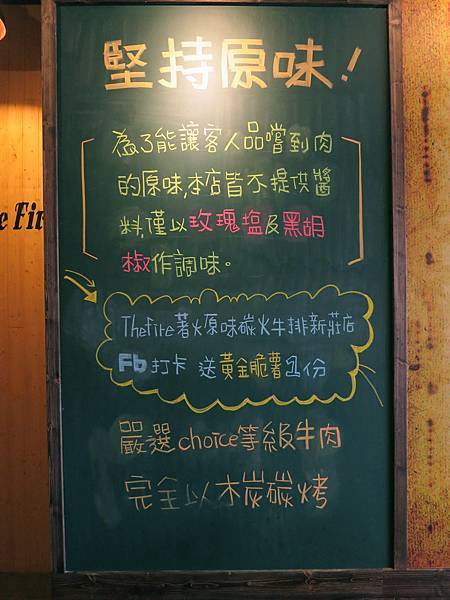 堅持原味!
為了能讓客人品嚐到肉
的原味,本店皆不提供醬
料,僅以玫瑰塩及黑胡
椒作調味。
Thefire著火原味碳火牛排新莊店
Fb打卡 送黃金脆薯1份
嚴選choice等級牛肉
完全以木炭碳烤
e Fir